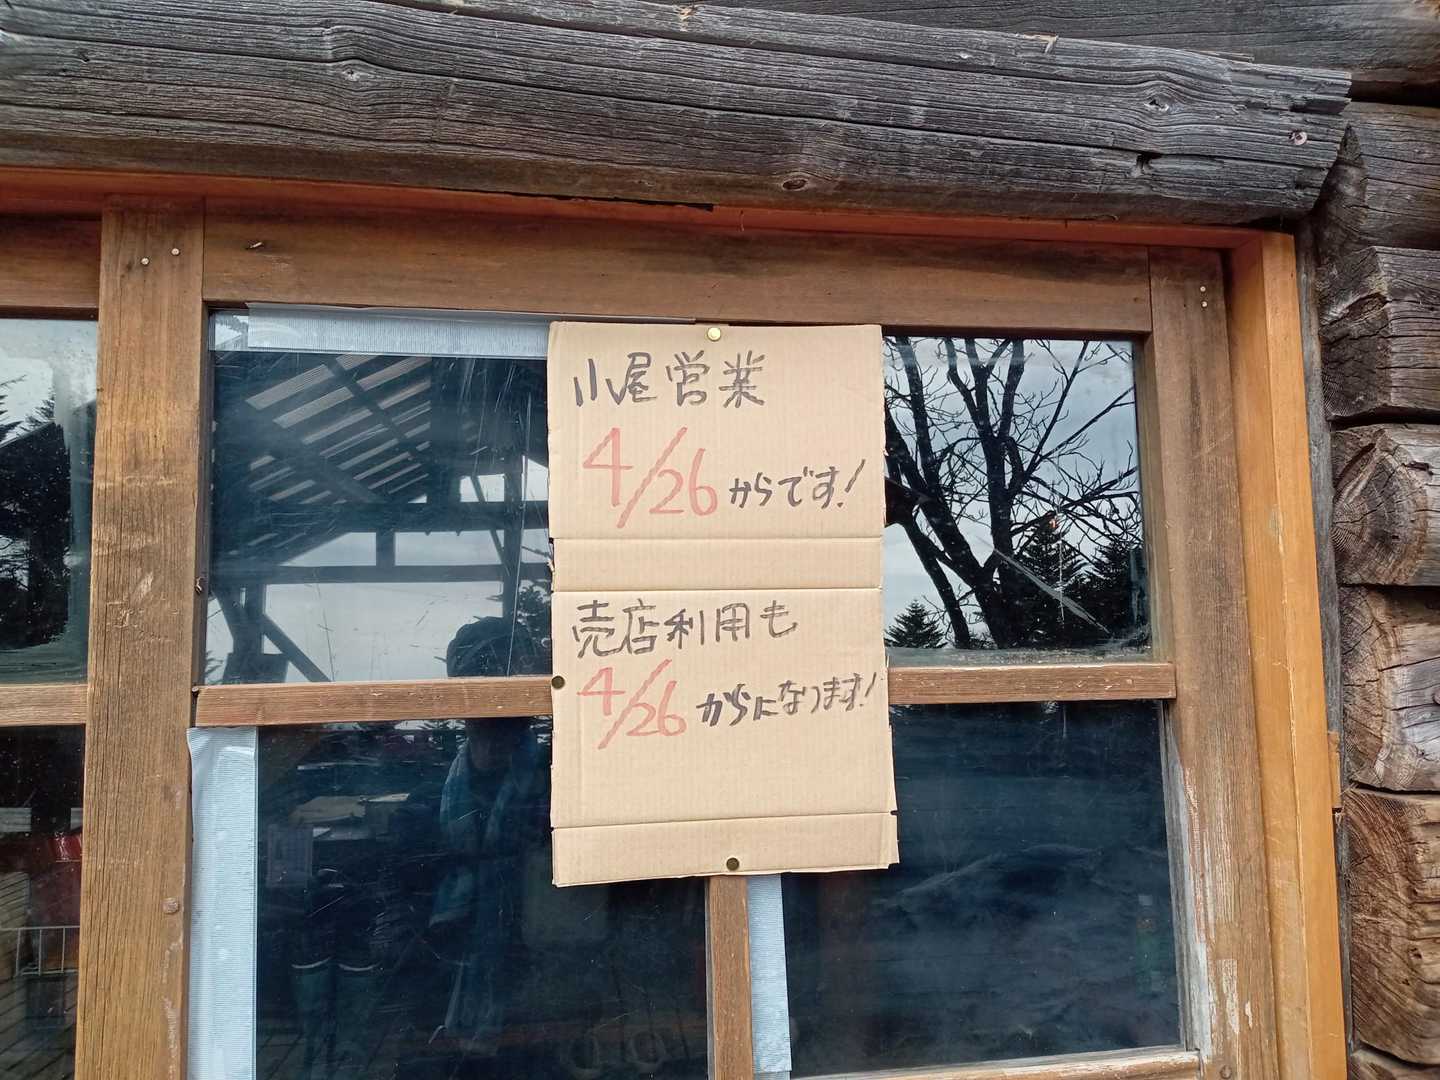 小屋営業
4/26からです!
売店利用も
4/26からになります!